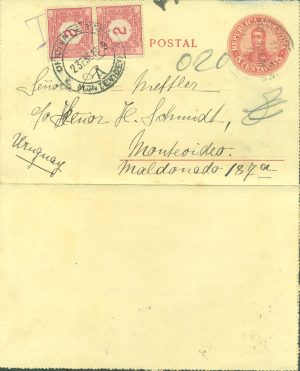 POSTAL
REPUBLICA ARGENTINA
5 CENTAVOS
2
2
MONTEVIDEO
T
020
Señora Mettler
c/o Señor H. Schmidt,
Montevideo
Maldonado 187a
Uruguay